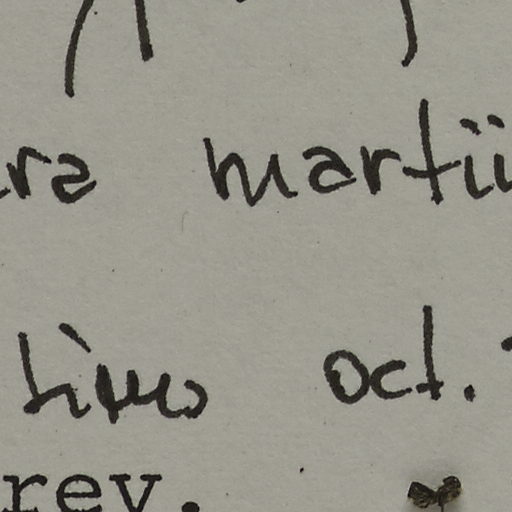 ra martii
limo oct.
rev.